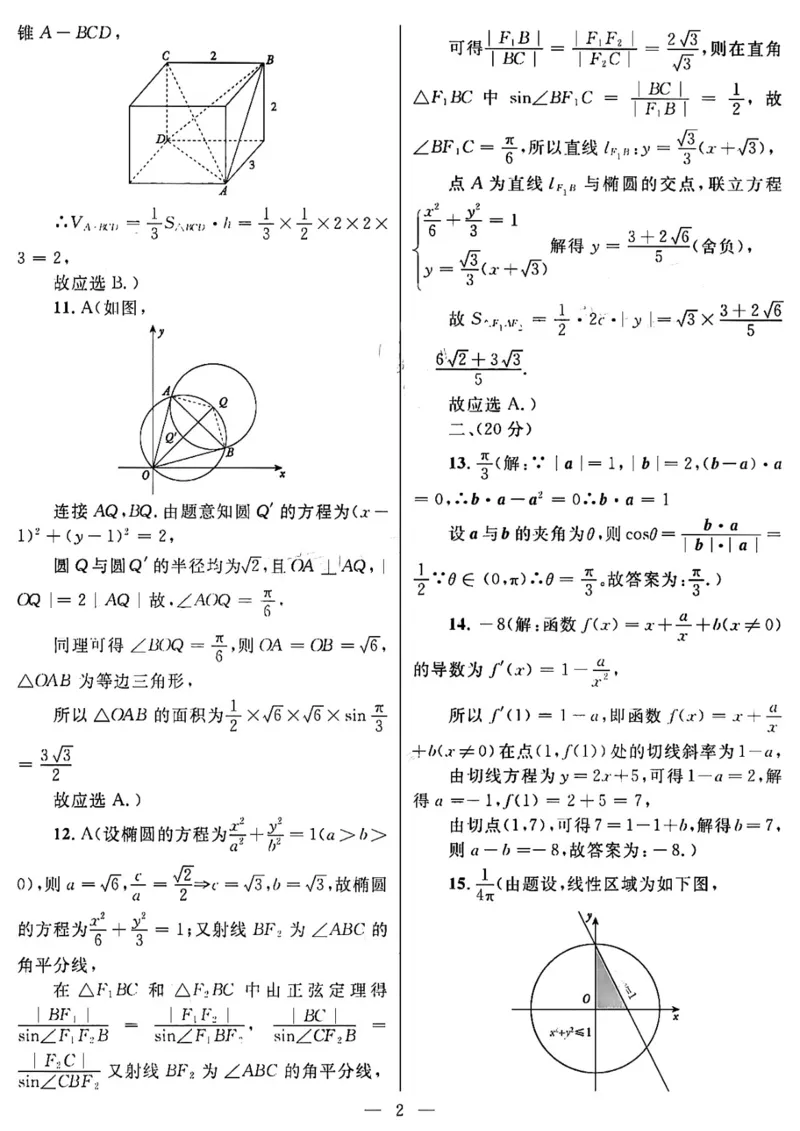 锥 A－BCD，
C 2 B
2
D
3
A
∴V_{A-BCD} = 1/3 S_{△BCD}·h = 1/3 × 1/2 ×2×2×
3 = 2，
故应选 B.）
11. A(如图，
y
A
Q
Q′
B
O x
连接 AQ,BQ.由题意知圆 Q′ 的方程为(x－
1)²＋(y－1)² = 2，
圆 Q 与圆 Q′ 的半径均为√2,且 OA ⊥ AQ,|
OQ |= 2 | AQ | 故,∠AOQ = π/6.
同理可得 ∠BOQ = π/6,则 OA = OB = √6,
△OAB 为等边三角形，
所以 △OAB 的面积为 1/2 ×√6×√6×sin π/3
= 3√3/2
故应选 A.）
12. A(设椭圆的方程为 x²/a² + y²/b² = 1(a＞b＞
0),则 a = √6, c/a = √2/2 ⇒c = √3,b = √3,故椭圆
的方程为 x²/6 + y²/3 = 1;又射线 BF₂ 为 ∠ABC 的
角平分线，
在 △F₁BC 和 △F₂BC 中由正弦定理得
| BF₁ |/sin∠F₁F₂B = | F₁F₂ |/sin∠F₁BF₂, | BC |/sin∠CF₂B =
| F₂C |/sin∠CBF₂ 又射线 BF₂ 为 ∠ABC 的角平分线，
可得 | F₁B |/| BC | = | F₁F₂ |/| F₂C | = 2√3/√3,则在直角
△F₁BC 中 sin∠BF₁C = | BC |/| F₁B | = 1/2, 故
∠BF₁C = π/6,所以直线 l_{F₁B}:y = √3/3 (x＋√3),
点 A 为直线 l_{F₁B} 与椭圆的交点,联立方程
{ x²/6 + y²/3 = 1
y = √3/3 (x＋√3)
解得 y = (3＋2√6)/5 (舍负),
故 S_{△F₁AF₂} = 1/2 · 2c ·| y |= √3 × (3＋2√6)/5
(6√2＋3√3)/5 .
故应选 A.）
二、(20 分)
13. π/3 (解:∵ |a|= 1,|b|= 2,(b－a)·a
= 0,∴b·a－a² = 0∴b·a = 1
设 a 与 b 的夹角为θ,则 cosθ= b·a/| b |·| a | =
1/2 ∵θ∈ (0,π)∴θ= π/3。故答案为: π/3.）
14. －8(解:函数 f(x) = x＋ a/x ＋b(x≠0)
的导数为 f′(x) = 1－ a/x²,
所以 f′(1) = 1－a,即函数 f(x) = x＋ a/x
＋b(x≠0)在点(1,f(1))处的切线斜率为1－a,
由切线方程为 y = 2x＋5,可得1－a = 2,解
得 a =－1,f(1) = 2＋5 = 7,
由切点(1,7),可得7 = 1－1＋b,解得b = 7,
则 a－b =－8,故答案为:－8.）
15. 1/4π (由题设,线性区域为如下图，
y
O
x
x²+y²≤1
— 2 —